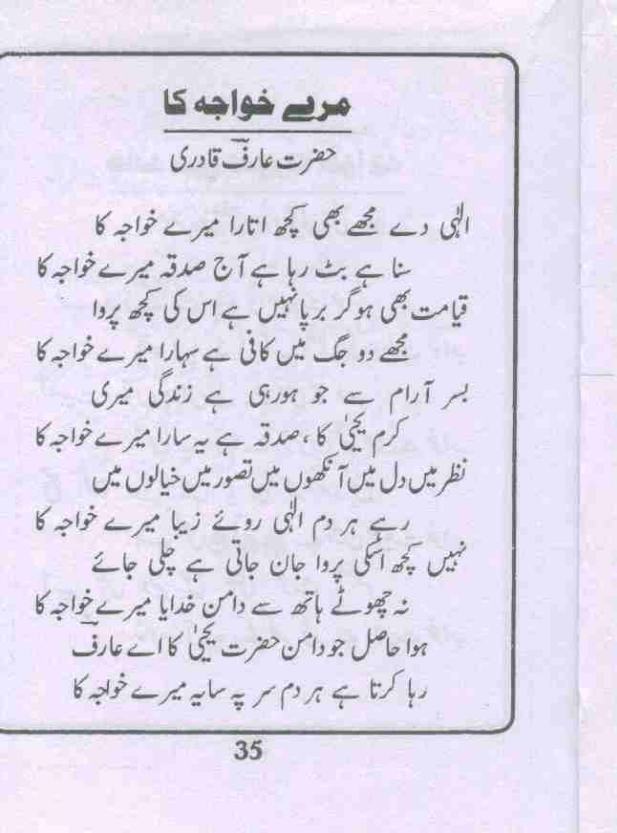 مرے خواجہ کا
حضرت عارفؔ قادری
الٰہی دے مجھے بھی کچھ اتارا میرے خواجہ کا
سنا ہے بٹ رہا ہے آج صدقہ میرے خواجہ کا
قیامت بھی ہو گر برپا نہیں ہے اس کی کچھ پروا
مجھے دو جگ میں کافی ہے سہارا میرے خواجہ کا
بسر آرام سے جو ہورہی ہے زندگی میری
کرم یحییٰ کا، صدقہ ہے یہ سارا میرے خواجہ کا
نظر میں دل میں آنکھوں میں تصور میں خیالوں میں
رہے ہر دم الٰہی روئے زیبا میرے خواجہ کا
نہیں کچھ اسکی پروا جان جاتی ہے چلی جائے
نہ چھوٹے ہاتھ سے دامن خدایا میرے خواجہ کا
ہوا حاصل جو دامن حضرت یحییٰ کا اے عارفؔ
رہا کرتا ہے ہر دم سر پہ سایہ میرے خواجہ کا
35